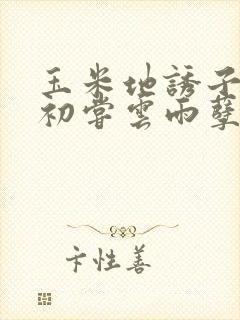 玉米地誘子
初嘗雲雨孽
卞性善